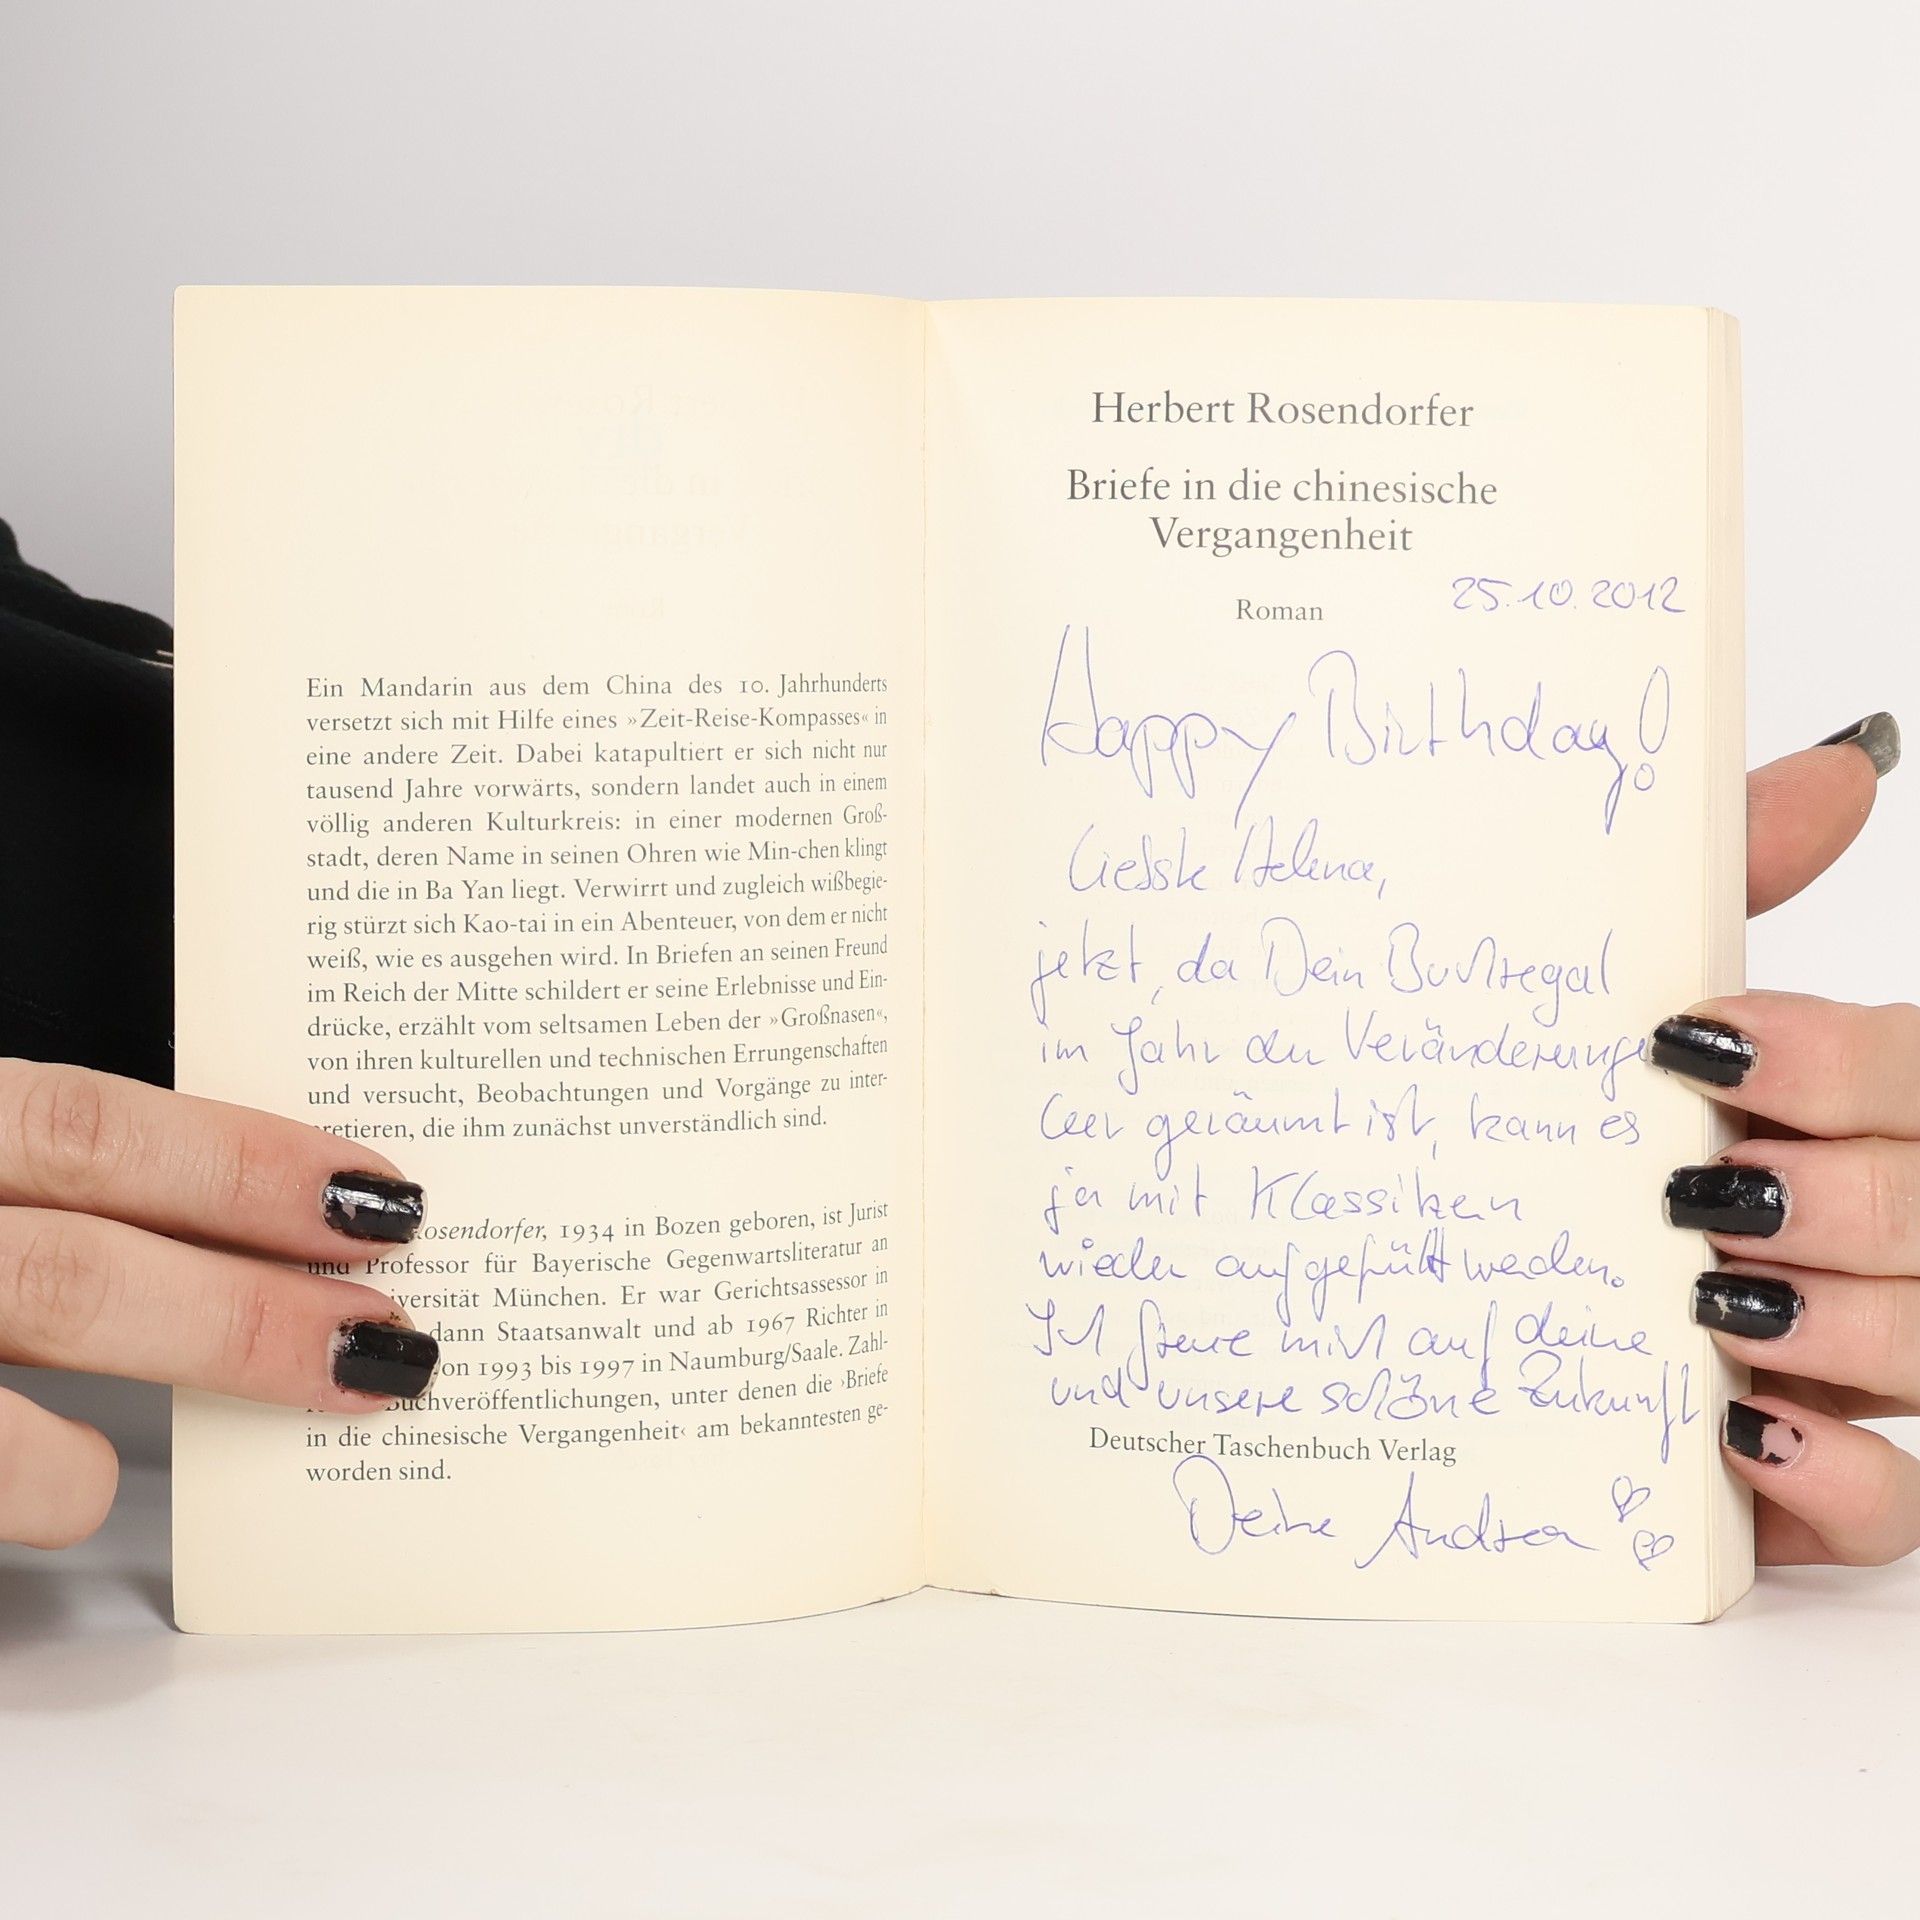 Ein Mandarin aus dem China des 10. Jahrhunderts
versetzt sich mit Hilfe eines »Zeit-Reise-Kompasses« in
eine andere Zeit. Dabei katapultiert er sich nicht nur
tausend Jahre vorwärts, sondern landet auch in einem
völlig anderen Kulturkreis: in einer modernen Groß-
stadt, deren Name in seinen Ohren wie Min-chen klingt
und die in Ba Yan liegt. Verwirrt und zugleich wißbegie-
rig stürzt sich Kao-tai in ein Abenteuer, von dem er nicht
weiß, wie es ausgehen wird. In Briefen an seinen Freund
im Reich der Mitte schildert er seine Erlebnisse und Ein-
drücke, erzählt vom seltsamen Leben der »Großnasen«,
von ihren kulturellen und technischen Errungenschaften
und versucht, Beobachtungen und Vorgänge zu inter-
pretieren, die ihm zunächst unverständlich sind.
Rosendorfer, 1934 in Bozen geboren, ist Jurist
und Professor für Bayerische Gegenwartsliteratur an
München. Er war Gerichtsassessor in
dann Staatsanwalt und ab 1967 Richter in
von 1993 bis 1997 in Naumburg/Saale. Zahl-
Buchveröffentlichungen, unter denen die ›Briefe
in die chinesische Vergangenheit‹ am bekanntesten ge-
worden sind.
Herbert Rosendorfer
Briefe in die chinesische
Vergangenheit
Roman
25.10.2012
Happy Birthday!
Liebste Helena,
jetzt, da Dein Buchregal
im Jahr der Veränderunge
leer geräumt ist, kann es
ja mit Klassikern
wieder aufgefüllt werden.
Ich freue mich auf deine
und unsere schöne Zukunft
Deutscher Taschenbuch Verlag
Deine Andrea